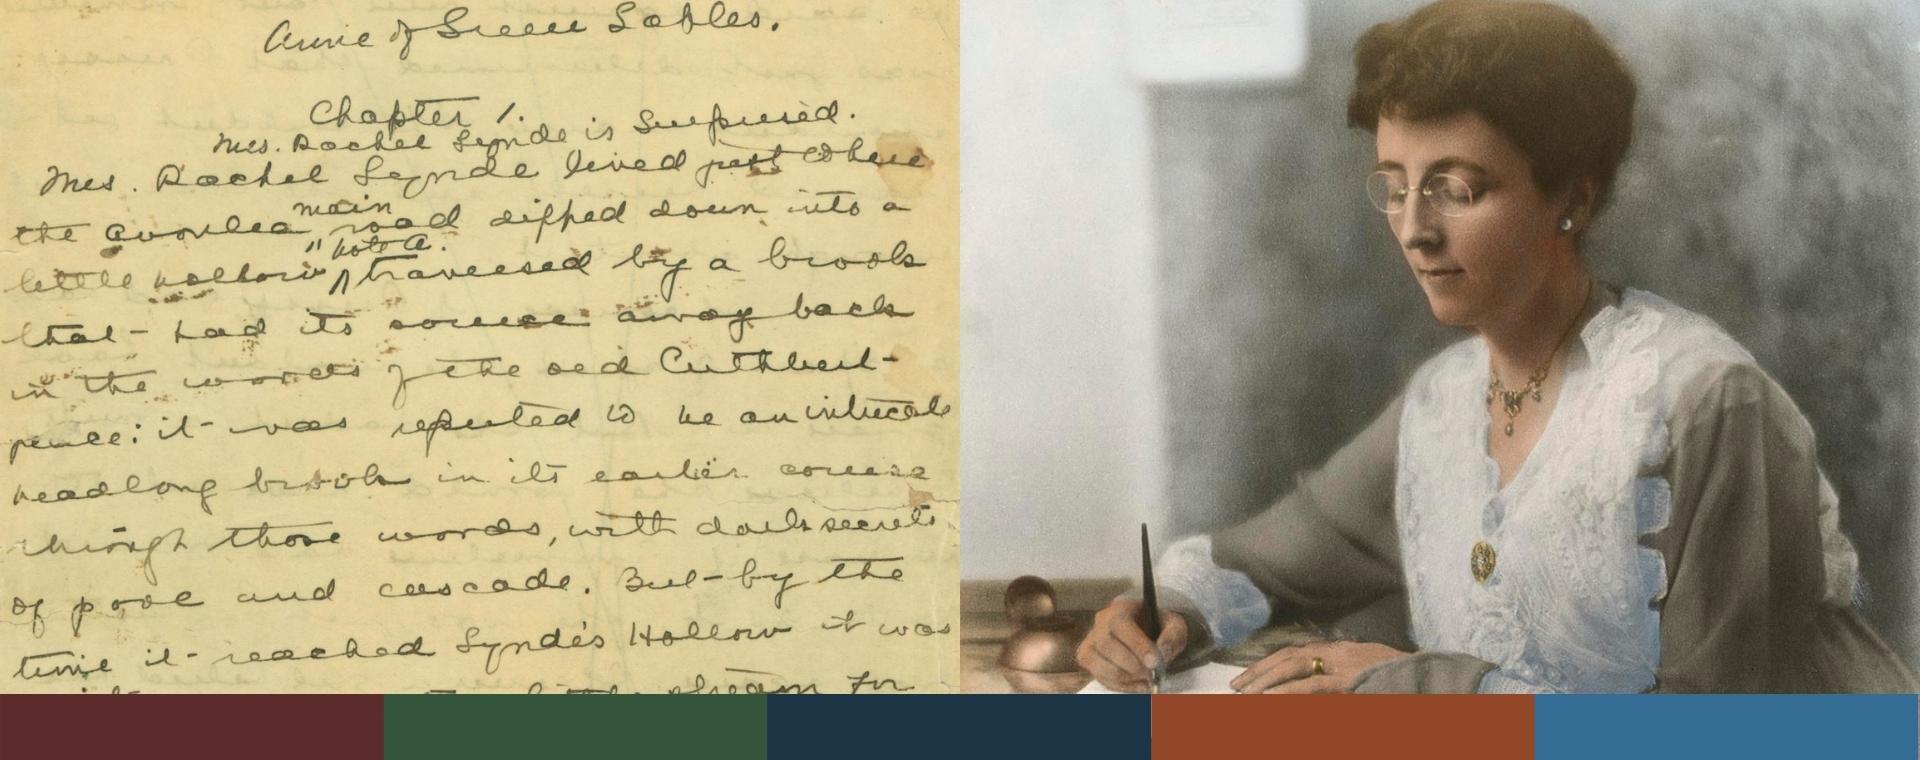 Anne of Green Gables.
Chapter 1.
Mrs. Rachel Lynde is Surprised.
Mrs. Rachel Lynde lived just where
main
the Avonlea road dipped down into a
Note A.
little hollow traversed by a brook
that had its source away back
in the woods of the old Cuthbert
place: it was reputed to be an intricate
headlong brook in its earlier course
through those woods, with dark secrets
of pool and cascade. But by the
time it reached Lynde's Hollow it was
little stream for